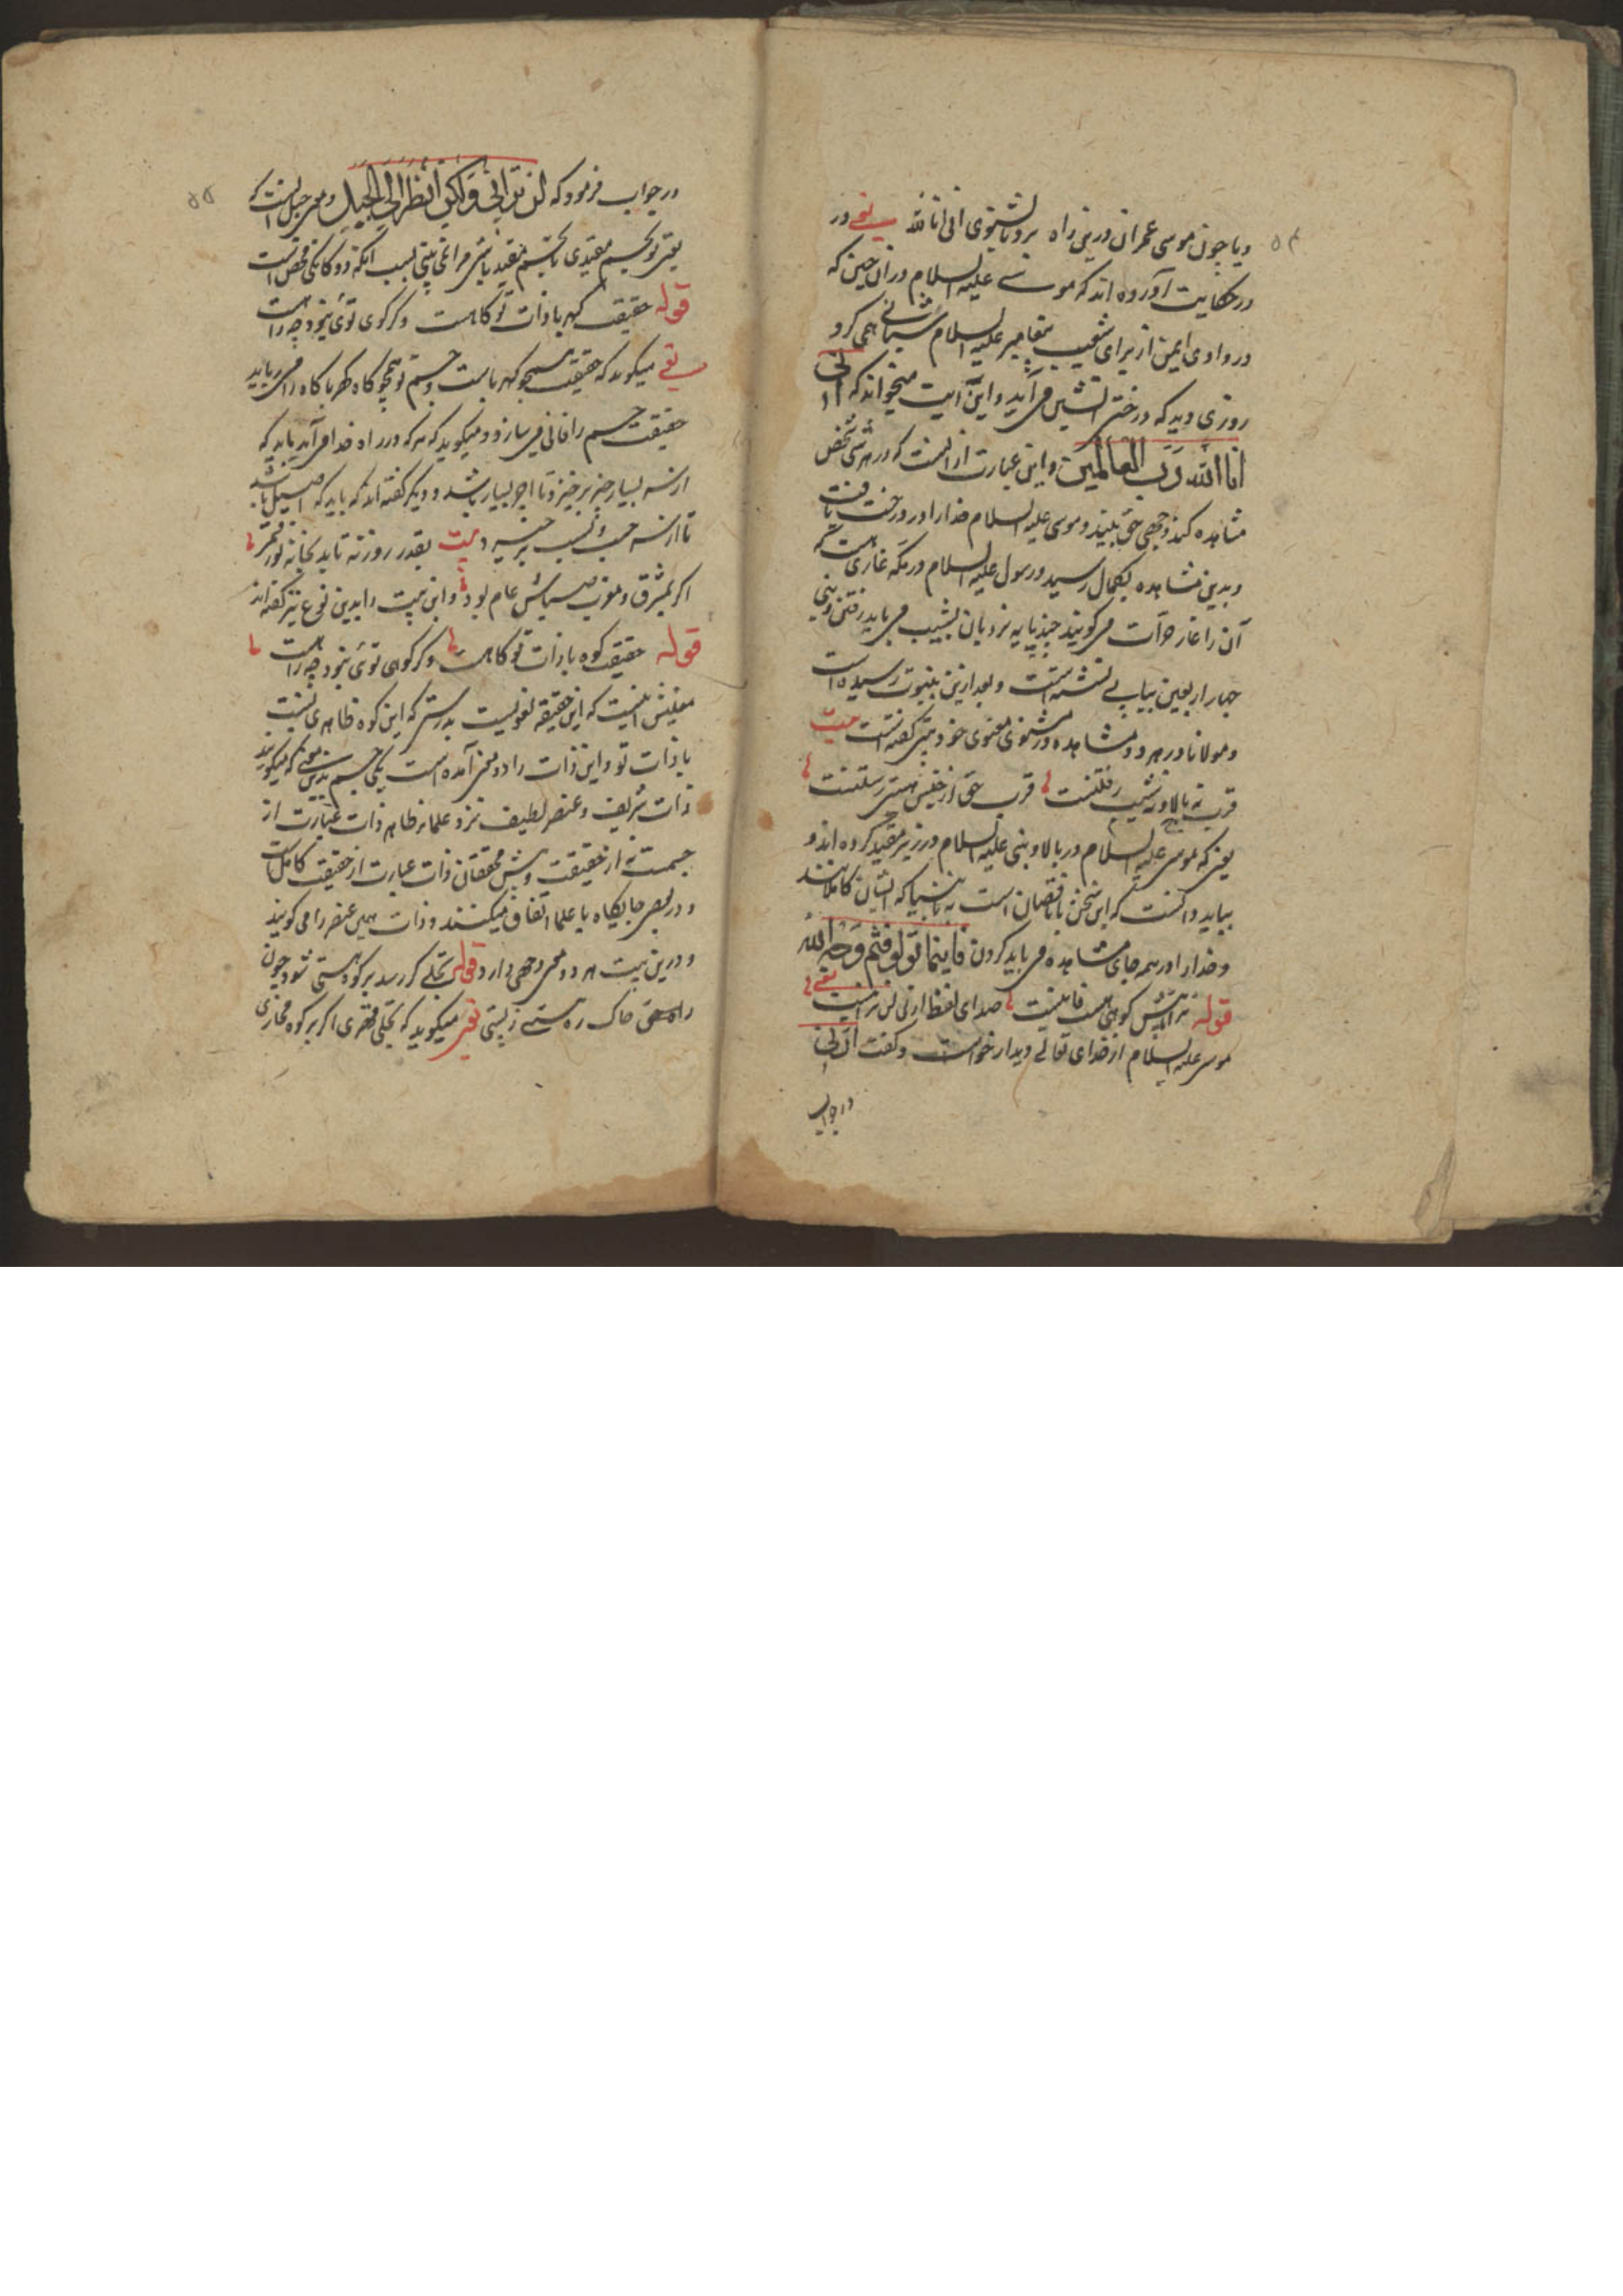 ۵۴
ویا چون موسی عمران درین راه برو تا بشنوی انی انا الله یعنی در
در حکایت آورده اند که موسی علیه السلام دران حین که
در وادی ایمن از برای شعیب پیغامبر علیه السلام شبانی همی کرد
روزی دید که درختی آتشین می آید و این آیت میخواند که انی
انا الله رب العالمین و این عبارت ازانست که در هر شی شخص
مشاهده کند وجهی حق بیند و موسی علیه السلام خدا را در درخت یافت
و بدین مشاهده بکمال رسید و رسول علیه السلام در مکه غاری است که
آن را غار حرآت می گویند چند پایه نردبان بشیب می باید رفتن و نبی
چهار اربعین بیاپی نشسته است و بعد ازین بنبوت رسیده است
و مولانا در هر دو مشاهده در مثنوی معنوی خود نیز گفته است بیت
قرب نه بالا و نه شیب رفتنست قرب حق از حبس هستی رستنست
یعنی که موسی علیه السلام در بالا و نبی علیه السلام در زیر مقید کرده اند و
بباید دانست که این سخن با نقصان است نه با انبیا که ایشان کاملانند
و خدا را در همه جای مشاهده می باید کردن فاینما تولوا فثم وجه الله
قوله ترا تا پیش کوهی هست فانیست صدای لفظ ارنی لن ترانیست یعنی
موسی علیه السلام از خدای تعالی دیدار خواست و گفت ارنی
در جواب
۵۵
در جواب فرمود که لن ترانی ولکن انظر الی الجبل و معنی جبل انست که
یعنی تو بجسم مقیدی تا بجسم مقید باشی مرا نمی بینی بسبب انکه دوکانکی محض است
قوله حقیقت کهربا ذات تو کاهست و گر کوی توئی نبود چه راهست
یعنی میکوید که حقیقت همچو کهرباست و جسم تو همچو کاه کهربا کاه را می رباید
حقیقت جسم را فانی می سازد و میکوید که هر که در راه خدا می آید باید که
از سر بسیار چیز بر خیزد تا اجر بسیار باشد و دیگر گفته اند که باید که اصیل باشد
تا از سر حسب و نسب بر خیزد بیت بقدر روزنه تابد بخانه نور قمر
اکر بمشرق و مغرب ضیاش عام بود و این بیت را بدین نوع نیز گفته اند
قوله حقیقت کوه با ذات تو کاهست و گر کوهی توئی نبود چه راهست
معنیش اینست که این حقیقه لغویست بدرستی که این کوه ظاهری نسبت
با ذات تو و این ذات را دو معنی آمده است یکی جسم بدین معنی که میکویند
ذات شریف و عنصر لطیف نزد علماء ظاهر ذات عبارت از
جسمست نه از حقیقت و پیش محققان ذات عبارت از حقیقت کامل است
و در بعضی جایکاه با علما اتفاق میکنند و ذات همین عنصر را می کویند
و درین بیت هر دو معنی وجهی دارد قوله تجلی گر رسد بر کوه هستی شود چون
راه خاک ره هستی ز پستی یعنی میکوید که تجلی قهری اکر بر کوه مجازی